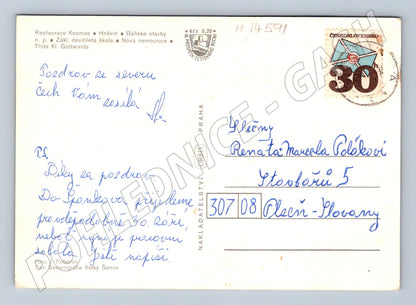 Restaurace Kosmos • Hněvín • Baňské stavby
n. p. • Zákl. devítiletá škola • Nová nemocnice •
Třída Kl. Gottwalda
Kčs 0,20
H 14591
ČESKOSLOVENSKO
30
Pozdrav ze severu
Čech Vám zasílá
P.S.
Díky za pozdrav.
Do Špankova přijedeme
pravděpodobně 30. září,
neboť nyní je pracovní
sobota. Ještě napíši.
NAKLADATELSTVÍ ORBIS PRAHA
Slečny
Renata Marcela Polákovi
Stavbařů 5
307 08 Plzeň - Slovany
Tisk Severografia Velký Šenov
POHLEDNICE - GASH